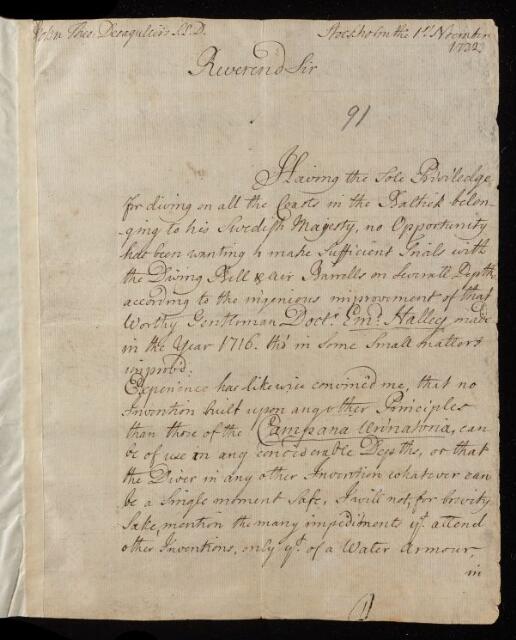 John Theo. Desaguliers LL.D.
Stockholm the 1st November
1732
Reverend Sir
91
Having the Sole Priviledge
for diving on all the Coasts in the Baltick belon-
-ging to his Swedish Majesty, no Opportunity
has been wanting to make Sufficient Trials with
the Diving Bell & air Barrells on Severall Depths
according to the ingenious improvement of that
Worthy Gentleman Doctr. Emd. Halley made
in the Year 1716. tho' in some Small matters
improv'd:
Experience has likewise convinced me, that no
invention built upon any other Principles
than those of the Campana Urinatoria, can
be of use in any considerable Depths, or that
the Diver in any other Invention whatever can
be a Single moment Safe, I will not, for brevity
Sake, mention the many impediments yt. attend
other Inventions, only yt. of a Water Armour,
in